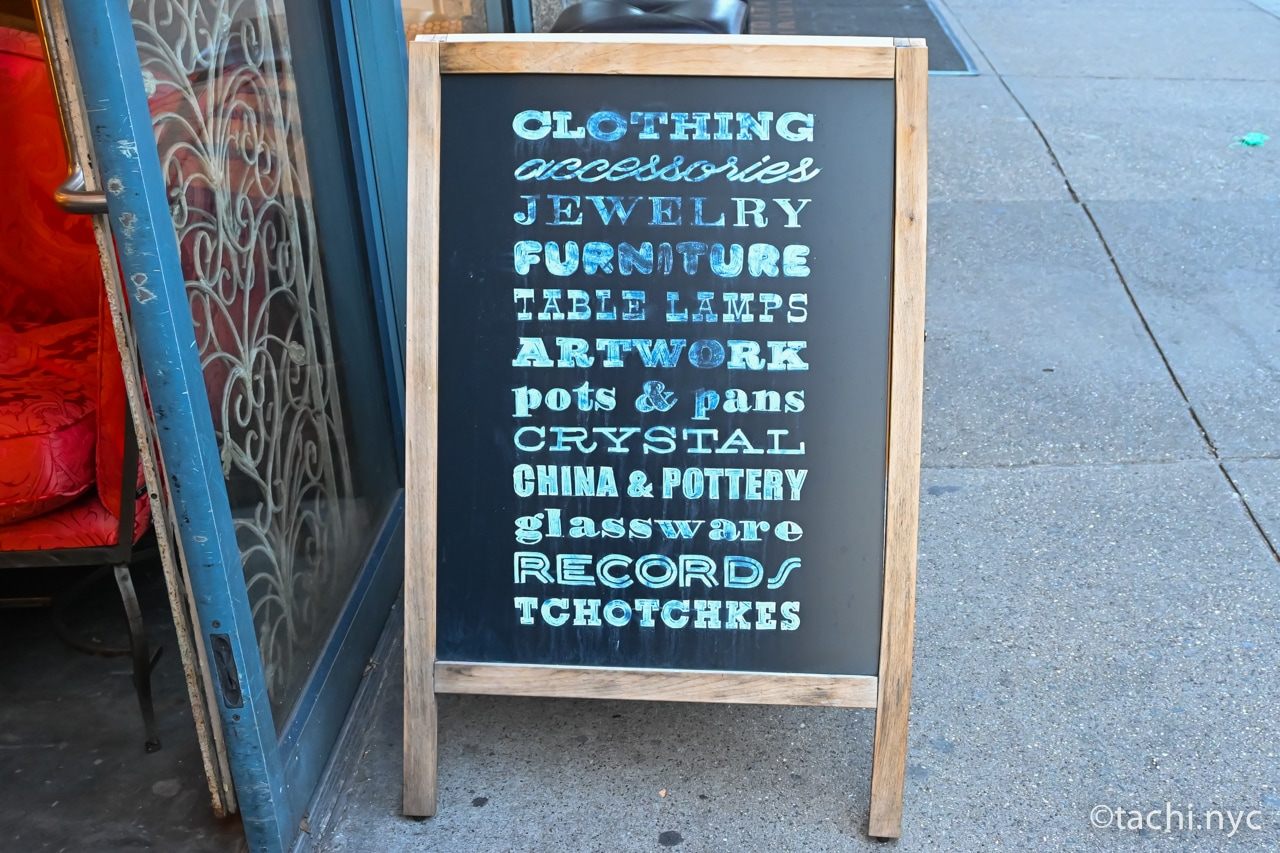 CLOTHING
accessories
JEWELRY
FURNITURE
TABLE LAMPS
ARTWORK
pots & pans
CRYSTAL
CHINA & POTTERY
glassware
RECORDS
TCHOTCHKES
©tachi.nyc